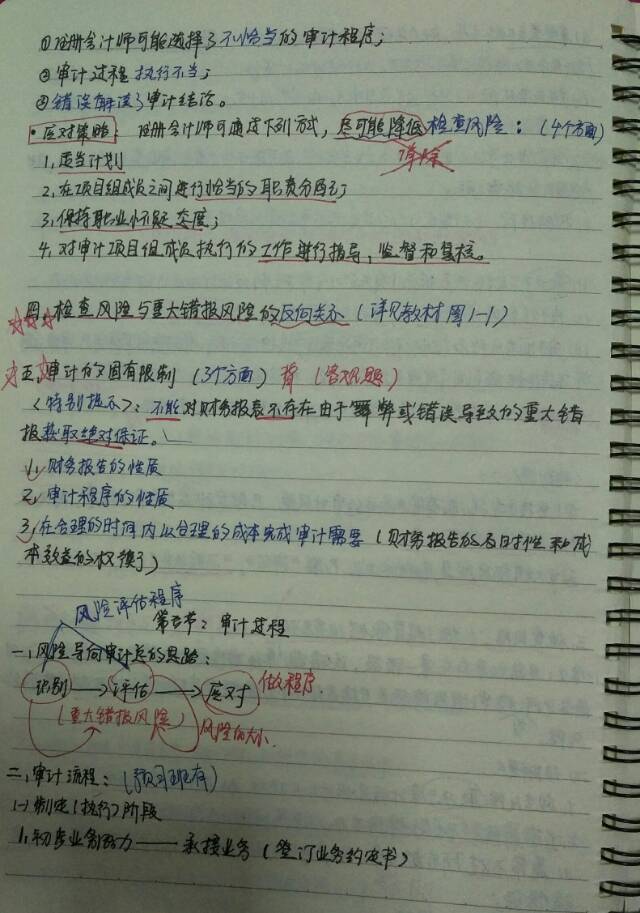 ①注册会计师可能选择了不恰当的审计程序;
②审计过程执行不当;
③错误解读了审计结论。
·应对策略: 注册会计师可通过下列方式,尽可能降低检查风险:(4个方面)
消除
1.适当计划
2.在项目组成员之间进行恰当的职责分配;
3.保持职业怀疑态度;
4.对审计项目组成员执行的工作进行指导,监督和复核。
四、检查风险与重大错报风险的反向关系(详见教材图1-1)
五、审计的固有限制(3个方面)背(客观题)
〈特别提示〉:不能对财务报表不存在由于舞弊或错误导致的重大错
报获取绝对保证。
1.财务报告的性质
2.审计程序的性质
3.在合理的时间内以合理的成本完成审计需要(财务报告的及时性和成
本效益的权衡)
风险评估程序
第五节:审计过程
一、风险导向审计总的思路:
识别→评估→应对 做程序.
(重大错报风险) 风险的大小.
二、审计流程:(预习班有)
(一)制定(执行)阶段
1.初步业务活力——承接业务(签订业务约定书)